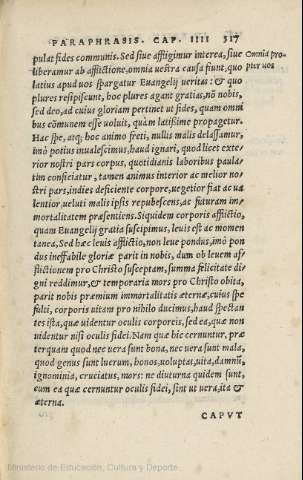 PARAPHRASIS. CAP. IIII 517
pulat fides communis. Sed siue affligimur interea, siue
liberamur ab afflictione, omnia uestra causa fiunt, quo
latius apud uos spargatur Euangelij ueritas: & quo
plures resipiscunt, hoc plures agant gratias, nõ nobis,
sed deo, ad cuius gloriam pertinet ut fides, quam omni
bus cõmunem esse uoluit, quàm latissime propagetur.
Hac spe, atq; hoc animo freti, nullis malis delassamur,
imò potius inualescimus, haud ignari, quod licet exte-
rior nostri pars corpus, quotidianis laboribus paula-
tim conficiatur, tamen animus interior ac melior no-
stri pars, indies deficiente corpore, uegetior fiat ac ua
lentior, ueluti malis ipsis repubescens, ac futuram im-
mortalitatem præsentiens. Siquidem corporis afflictio,
quam Euangelij gratia suscipimus, leuis est ac momen
tanea, Sed hæc leuis afflictio, non leue pondus, imò pon
dus ineffabile gloriæ parit in nobis, dum ob leuem af-
flictionem pro Christo susceptam, summa felicitate di
gni reddimur, & temporaria mors pro Christo obita,
parit nobis præmium immortalitatis æternæ, cuius spe
fulti, corporis uitam pro nihilo ducimus, haud spectan
tes ista, quæ uidentur oculis corporeis, sed ea, quæ non
uidentur nisi oculis fidei. Nam quæ hic cernuntur, præ
terquam quod nec uera sunt bona, nec uera sunt mala,
quod genus sunt lucrum, honos, uoluptas, uita, damnũ,
ignominia, cruciatus, mors: ne diuturna quidem sunt,
cum ea quæ cernuntur oculis fidei, sint ut uera, ita &
æterna.
CAPVT
Omnia pro-
pter uos
Ministerio de Educación, Cultura y Deporte